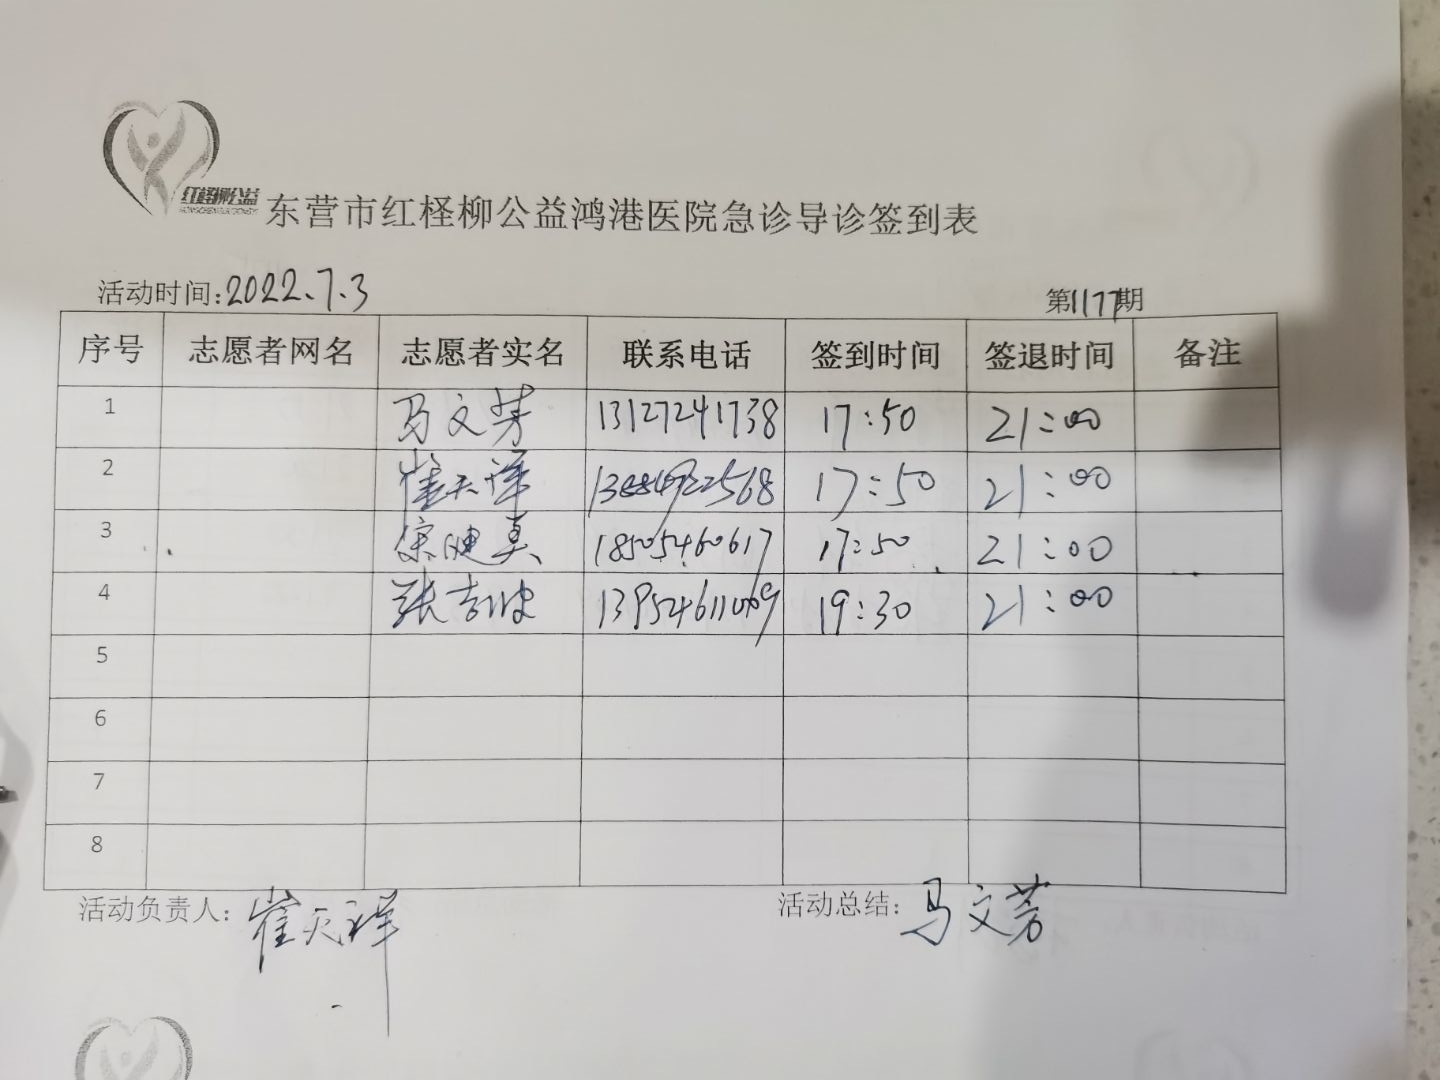 红柽柳公益
东营市红柽柳公益鸿港医院急诊导诊签到表
活动时间:2022.7.3 第1177期
序号 志愿者网名 志愿者实名 联系电话 签到时间 签退时间 备注
1 马文芳 13127241738 17:50 21:00
2 崔天祥 17:50 21:00
3 宋健真 18505460617 17:50 21:00
4 张吉波 13954611069 19:30 21:00
5
6
7
8
活动负责人: 崔天祥 活动总结: 马文芳